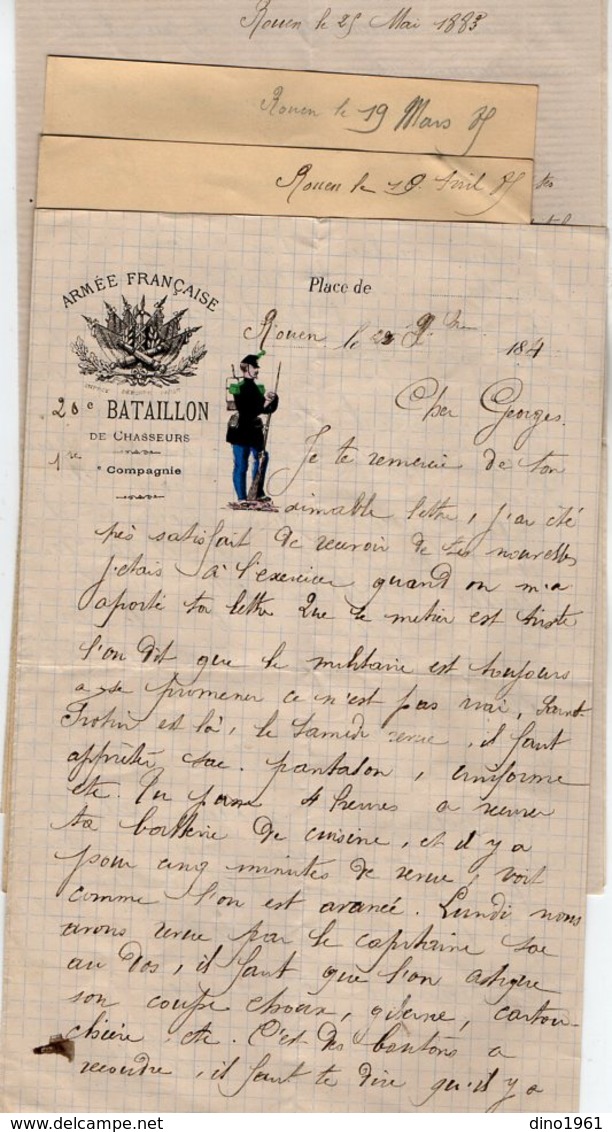 Rouen le 25 Mai 1883
Rouen le 19 Mars 85
Rouen le 19 Avril 85
ARMÉE FRANÇAISE
20e BATAILLON
DE CHASSEURS
1re Compagnie
Place de
Rouen le 22 9bre 1884
Cher Georges.
Je te remercie de ton
aimable lettre, j'ai été
très satisfait de recevoir de tes nouvelles
j'etais à l'exercice quand on m'a
aporté ta lettre Que le metier est triste
l'on dit que le militaire est toujours
a se promener ce n'est pas vrai, Saint
Frotin est là, le samedi revue, il faut
apprêter sac. pantalon, uniforme
etc. Tu passe 4 heures a
ta batterie de cuisine, et il y a
pour cinq minutes de revue, voit
comme l'on est avancé. Lundi nous
avons revue par le capitaine sac
au dos, il faut que l'on astique
son coupe choux, giberne, cartou-
chière etc. C'est des boutons a
recoudre, il faut te dire qu'il y a
delcampe.net
dino1961